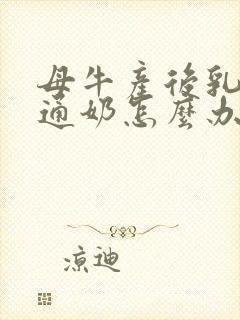 母牛產後乳
通奶怎麼办
涼迪